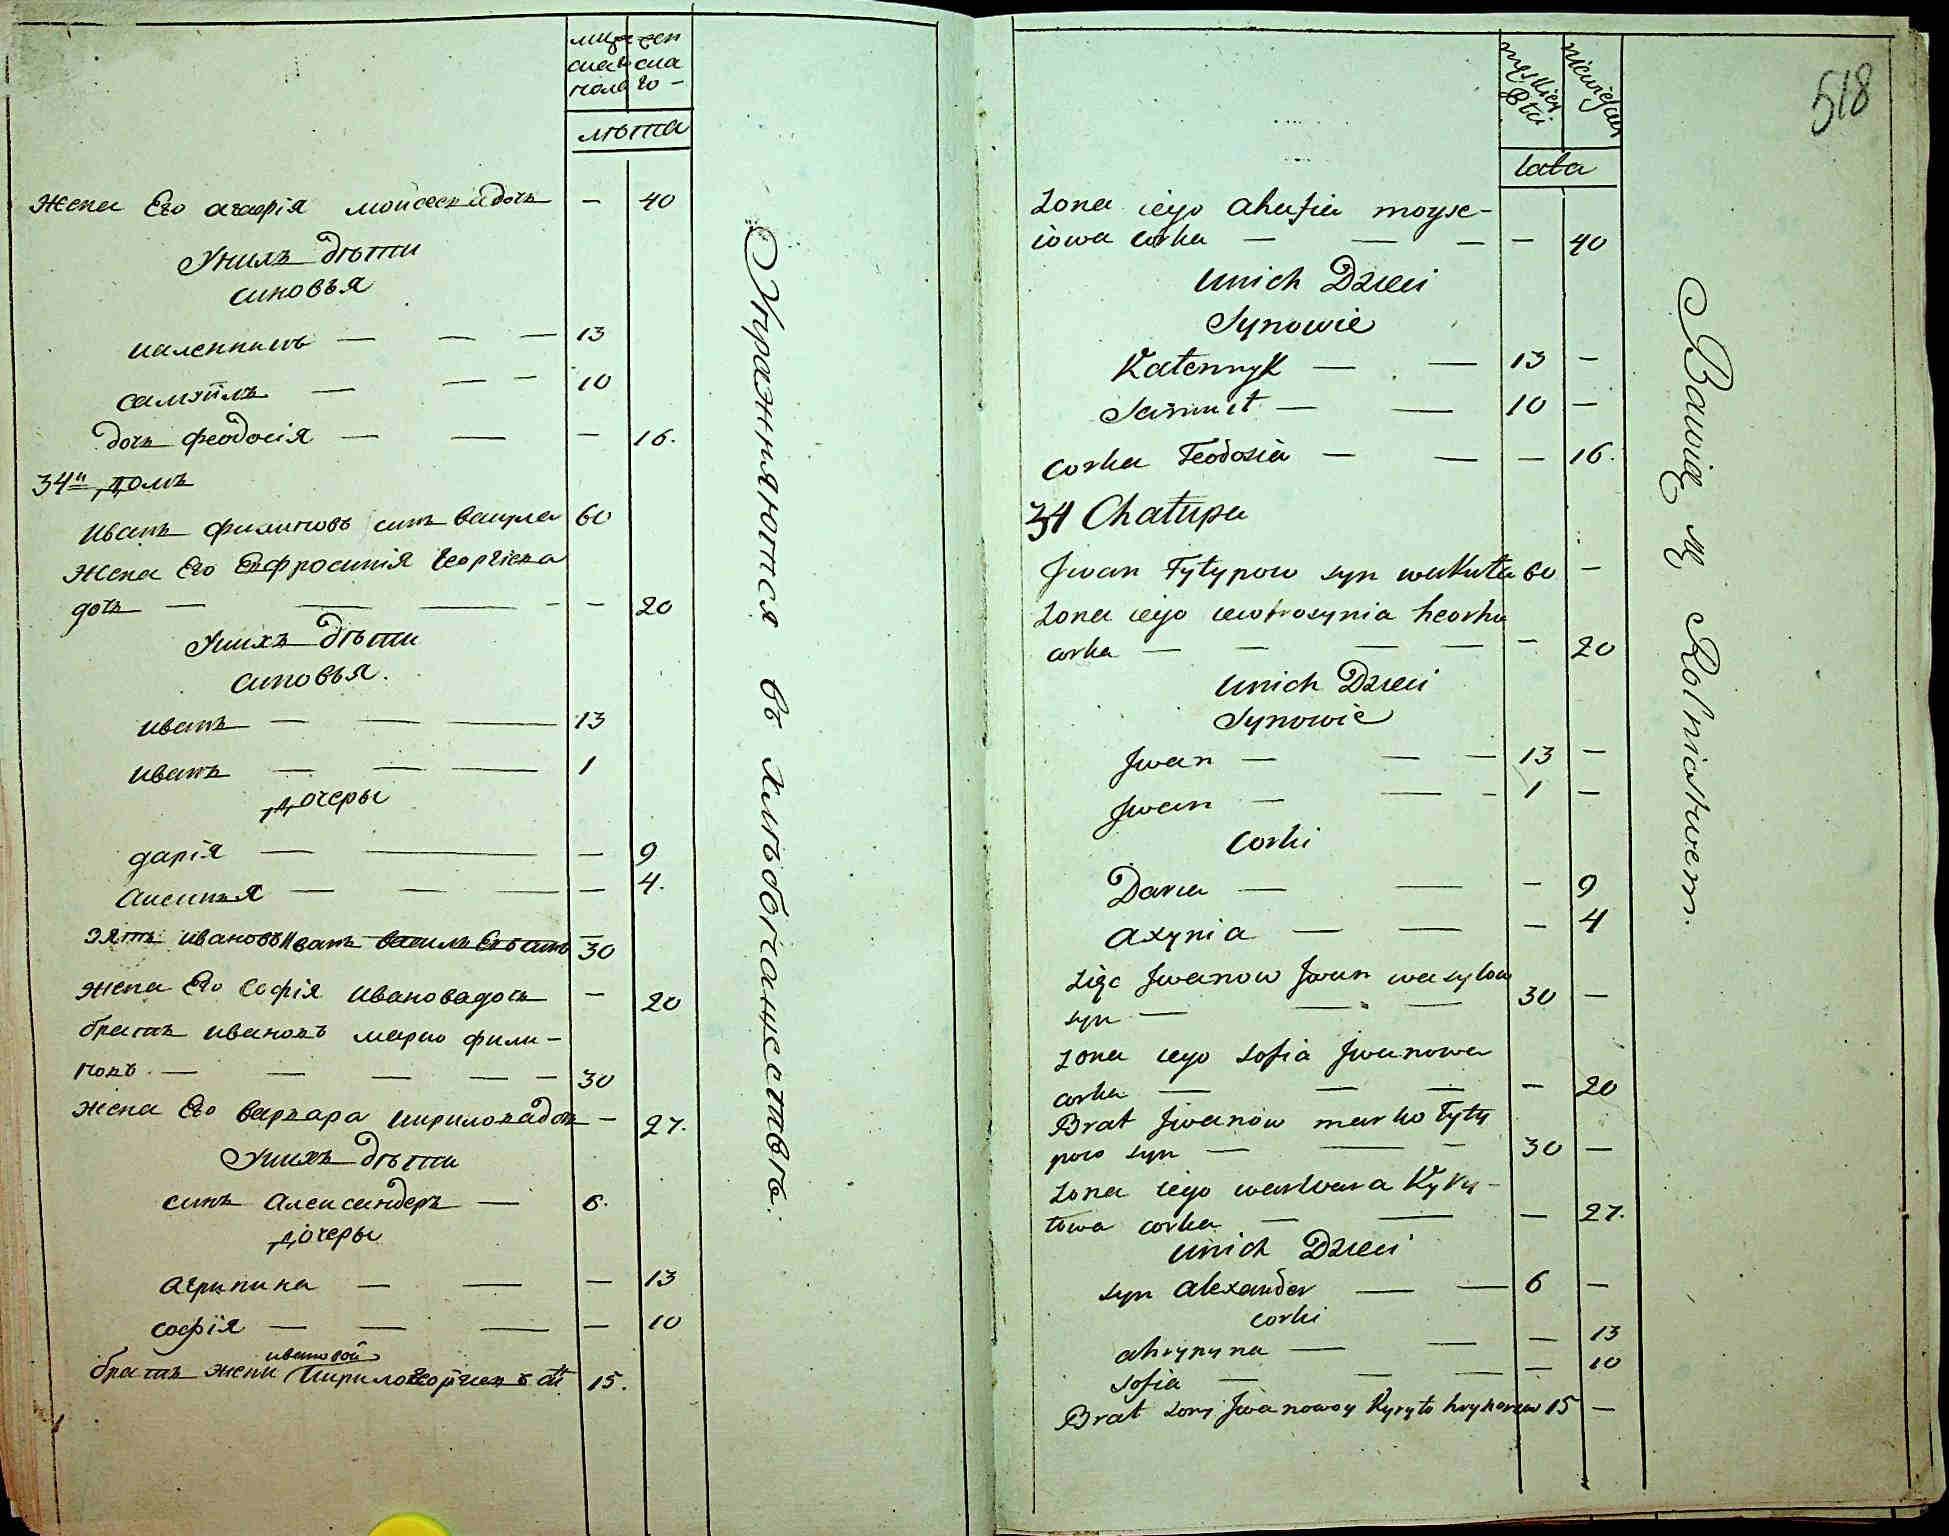 муже жен
ска ска
пола го -
лѣта
жена Его агафія мойсеева дочь — 40
Унихъ дѣти
синовъя
каленникъ — — — 13
самуилъ — — — 10
дочь феодосія — — — 16.
34й домъ
Иванъ филиповъ синъ вакула 60
жена Его Евфросинія Георгіева
дочь — — — — 20
Унихъ дѣти
синовъя.
иванъ — — — 13
иванъ — — — 1
дочеры
дарія — — — 9
аксинъя — — — — 4.
зять ивановъ Иванъ василъевъ синъ 30
жена Его софія Ивановадочь — 20
братъ ивановъ марко фили-
повъ. — — — — — 30
жена Его варвара кириловадочь — 27.
Унихъ дѣти
синъ александеръ — 6.
дочеры
агрипина — — — 13
софія — — — — 10
ивановой
братъ жени Кирило 15.
Упражняются въ хлѣбопашествѣ.
518
męskiey płci
niewieściey
lata
Zona iego ahafia moyse-
iowa corka — — — — 40
Unich Dzieci
Synowie
Kałennyk — — 13 —
Samuel — — 10 —
corka Feodosia — — — 16.
34 Chałupa
Jwan Fyłypow syn wakuła 60 —
Zona iego iewfrosynia heorhi
corka — — — — — 20
Unich Dzieci
Synowie
Jwan — — — 13 —
Jwan — — - 1 —
Corki
Daria — — — 9
axynia — — — 4
Zięc Jwanow Jwan wasylow
syn — — - — 30 —
Zona iego Sofia Jwanowa
corka — — — — 20
Brat Jwanow marko Fyły
pow syn — — — 30 —
Zona iego warwara Kyry-
łowa corka — — — 27.
Unich Dzieci
syn alexander — — 6 —
corki
ahrypyna — — — 13
sofia — — — — 10
Brat zony Jwanowoy Kyryło 15 —
Bawią się Rolniastwem.